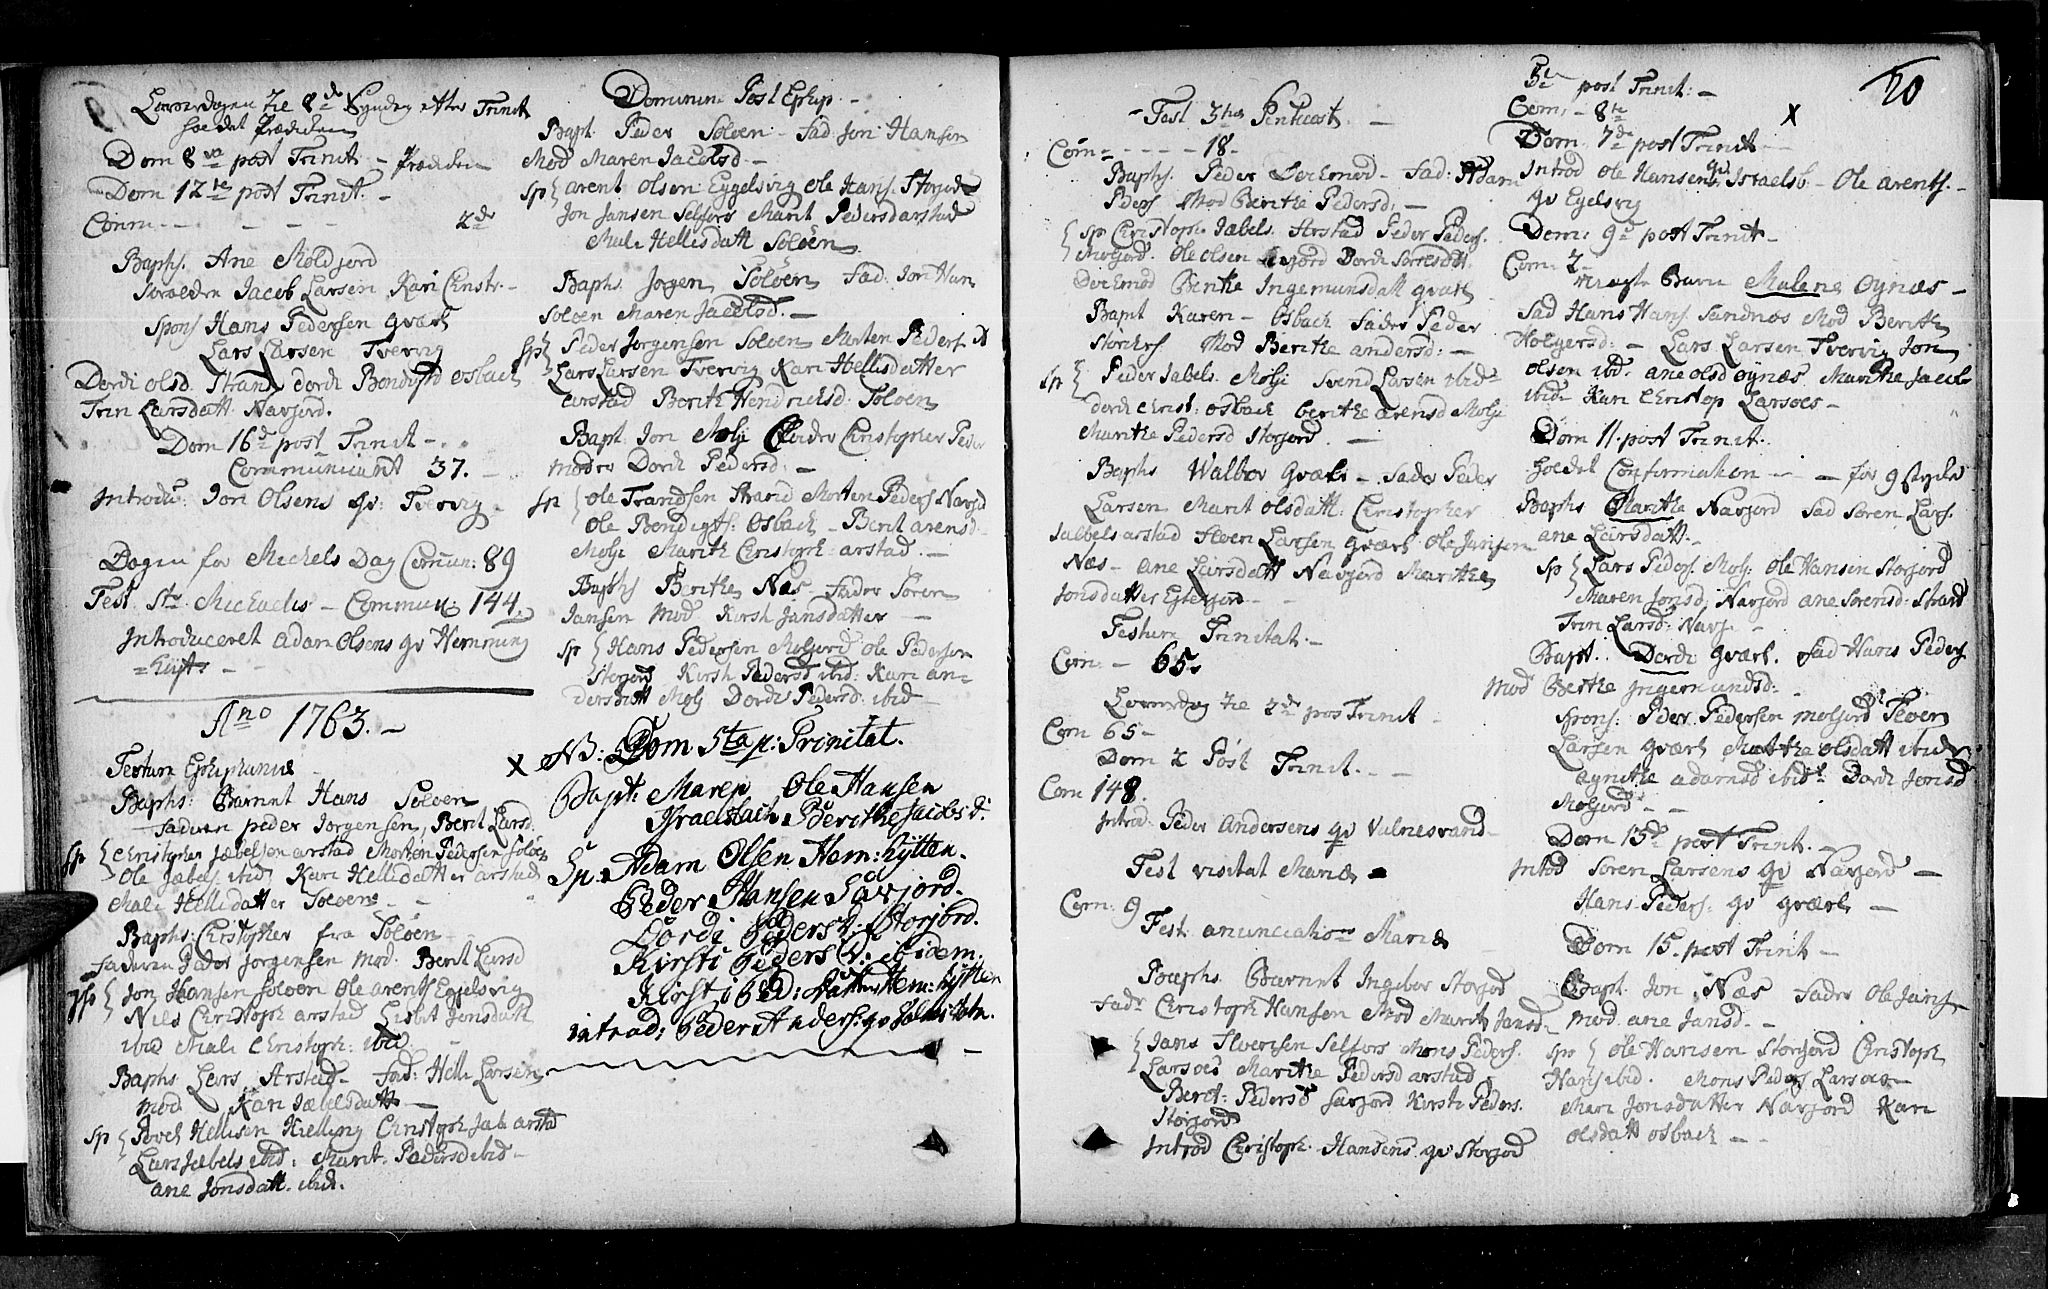 Løverdagen til 8de Syndag efter Trinit
holdet Prædiken
Dom 8va post Trinit - Prædiken
Dom 12te post Trinit. -
Comm - - - - - 2de
Baphs. Ane Moldjord
Jacob Larsen, Kari Christ. -
Spons Hans Pedersen Qvært
Lars Larsen Tvervig
Dordi olsd. Strand dordi Bendigtsd osbach
Trin Larsdatt Navjord.
Dom 16de post Trinit -
Communicant 37. -
Introdu. Jon Olsens qv: Tvervig -
Dagen for Michels Dag Commun: 89
Fest Sti Michaelis - Commun: 144.
Introduceret Adam Olsens qv Hemming
= hytt -
Ano 1763. -
Festum Epiphaniæ
Baphs: Barnet Hans Soløen
Faderen peder Jorgensen, Berit Larsd.
Sp Christopher Jæbelsen arstad Morten Pedersen Soløen
Ole Jæbels. ibid. Kari Hellisdatter arstad
Mali Hellisdatter Soløen -
Baphs: Christopher fra Soløen
Faderen Peder Jorgensen mod. Berit Larsd
Sp Jon Hansen Soløen Ole arents Egjelsvig
Nils Christoph arstad Lisbet Jonsdatt
ibid Mali Christoph: ibid
Baphs Lars Arstad - Fad: Helli Larsen
mod Kari Jæbelsdatt -
Sp Povel Hellisen Kielling Christoph Jæb arstad
Lars Jæbels ibid. Marit. Pedersd ibid -
ane Jonsdatt. ibid.
Dominica Post Epiph. -
Bapt. Peder Soløen - Fad: Jon Hansen
Mod Maren Jacobsd -
Sp arent Olsen Eygelsvig Ole Hans. Storjord
Jon Jansen Selfors Marit Pedersd arstad
Mali Hellisdatt Soløen
Baphs. Jorgen Soløen Fad: Jon Han
Soløen Maren Jacobsd. -
Sp Peder Jorgensen Soløen Morten Peders. ib
Lars Larsen Tvervig Kari Hellisdatter
arstad Berith Hendrichsd. Soløen
Bapt Jon Molji Fader Christopher Peder
moder Dordi Pedersd: -
Sp Ole Trandsen Strand Morten Peders Navjord
Ole Bendigts: Osbach - Berit arensd
Molji Marith Christoph: arstad. -
Baphs Berithe Næs - Fader Soren
Jansen Mod Kirsti Jansdatter -
Sp Hans Pedersen Moljord Ole Pedersen
Storjord Kirsti Pedersd ibid: Kari an=
dersdatt Molj Dordi Pedersd: ibid -
x NB: Dom 5ta p: Trinitat.
Bapt: Maren Ole Hansen
Israelsbach. Berithe Jacobsd:
Sp: Adam Olsen Hem: hytten.
Peder Hansen Savjord.
Dordi Pedersd: Storjord.
Kirsti Pedersd: ibidem.
Kirsti Ped: datter Hem: hytten
introd: Peder Anders: qv
- Fest 3tia Pentecost. -
Com= - - - - 18 -
Baphs. Peder Dochmod - Fad: Adam
Peders Mod Berithe Pedersd: -
Sp Christoph. Jæbels. Arstad Peder Peders.
Moljord. Ole Olsen Dordi Sorresdatt
Dochmod Berithe Ingemunsdatt Qvært
Bapt Karen - Osbach Fader Peder
Mod Berithe andersd: -
Sp Peder Jabels. Molji Svend Larsen ibid
dordi christ: osbach berithe arensd Molji
Marithe Pedersd Storjord. -
Baphs Walbor Qvært - Fader Peder
Larsen Marit olsdatt: Christopher
Jæbbels arstad Iver Larsen Qvært Ole Jansen
Næs - ane Larsdatt Navjord Marithe
Jonsdatter -
Festum Trinitat. -
Com: - 65.
Løverdag til 2de pos Trinit -
Com 65 -
Dom 2 Post Trinit. - -
Com 148.
Introd: Peder Andersens qv Valnesvand -
Fest visitat Mariæ -
Com: 9
Fest anunciation Mariæ
Baphs. Barnet Ingebor Storjord
Fadr Christoph Hansen Mod Marit Jansd -
Jans Iversen Selfors Mons Peders.
Larsoes Marithe Pedersd arstad
Berit Pedersd Savjord Kirsti Peders.
Storjord
Introd Christoph. Hansens qv Storjord
20
5te post Trinit: -
Com: - 8te x
Dom: 7de post Trinit -
Introd Ole Hansens qv Israelsb. - Ole arents. -
qv Egelsvig
Dom: 9de post Trinit -
Com: 2 -
Barn Malene Oynæs -
Fad Hans Hans. Sandnæs Mod Berithe
Holgersd: - Lars Larsen Tvervig Jon
olsen ibd. ane olsd oynæs. Marithe Jacob
ibid. Kari Christop Larsoes -
Dom 11. post Trinit.
holdet Confirmation - - - for 9 Stycker
Baphs Marithe Navjord Fad Soren Lars.
ane Larsdatt. -
Sp Lars Peders. Molj: Ole Hansen Storjord
Maren Jonsd, Navjord ane Sorensd: Strand
Trin Larsd: Navj. -
Bapt. Dordi Qvært. Fad Hans Peders
Mod Berithe Ingemundsd: -
Spons: Peder Pedersen moljord Iver
Larsen Qvært Marithe olsdatt ibid
Agnithe adamsd ibid. Dordi Jonsd
Moljord -
Dom 13de post Trinit. -
Intod Soren Larsens qv Navjord -
Hans Peders: qv Qvært -
Dom 15. post Trinit -
Bapt. Jon Næs Fader Ole Jans
mod. ane Jansd. -
Sp Ole Hansen Storjord Christoph
Hans ibid. Mons Peders Larsoes -
Mari Jonsdatter Navjord Kari
olsdatt osbach - -